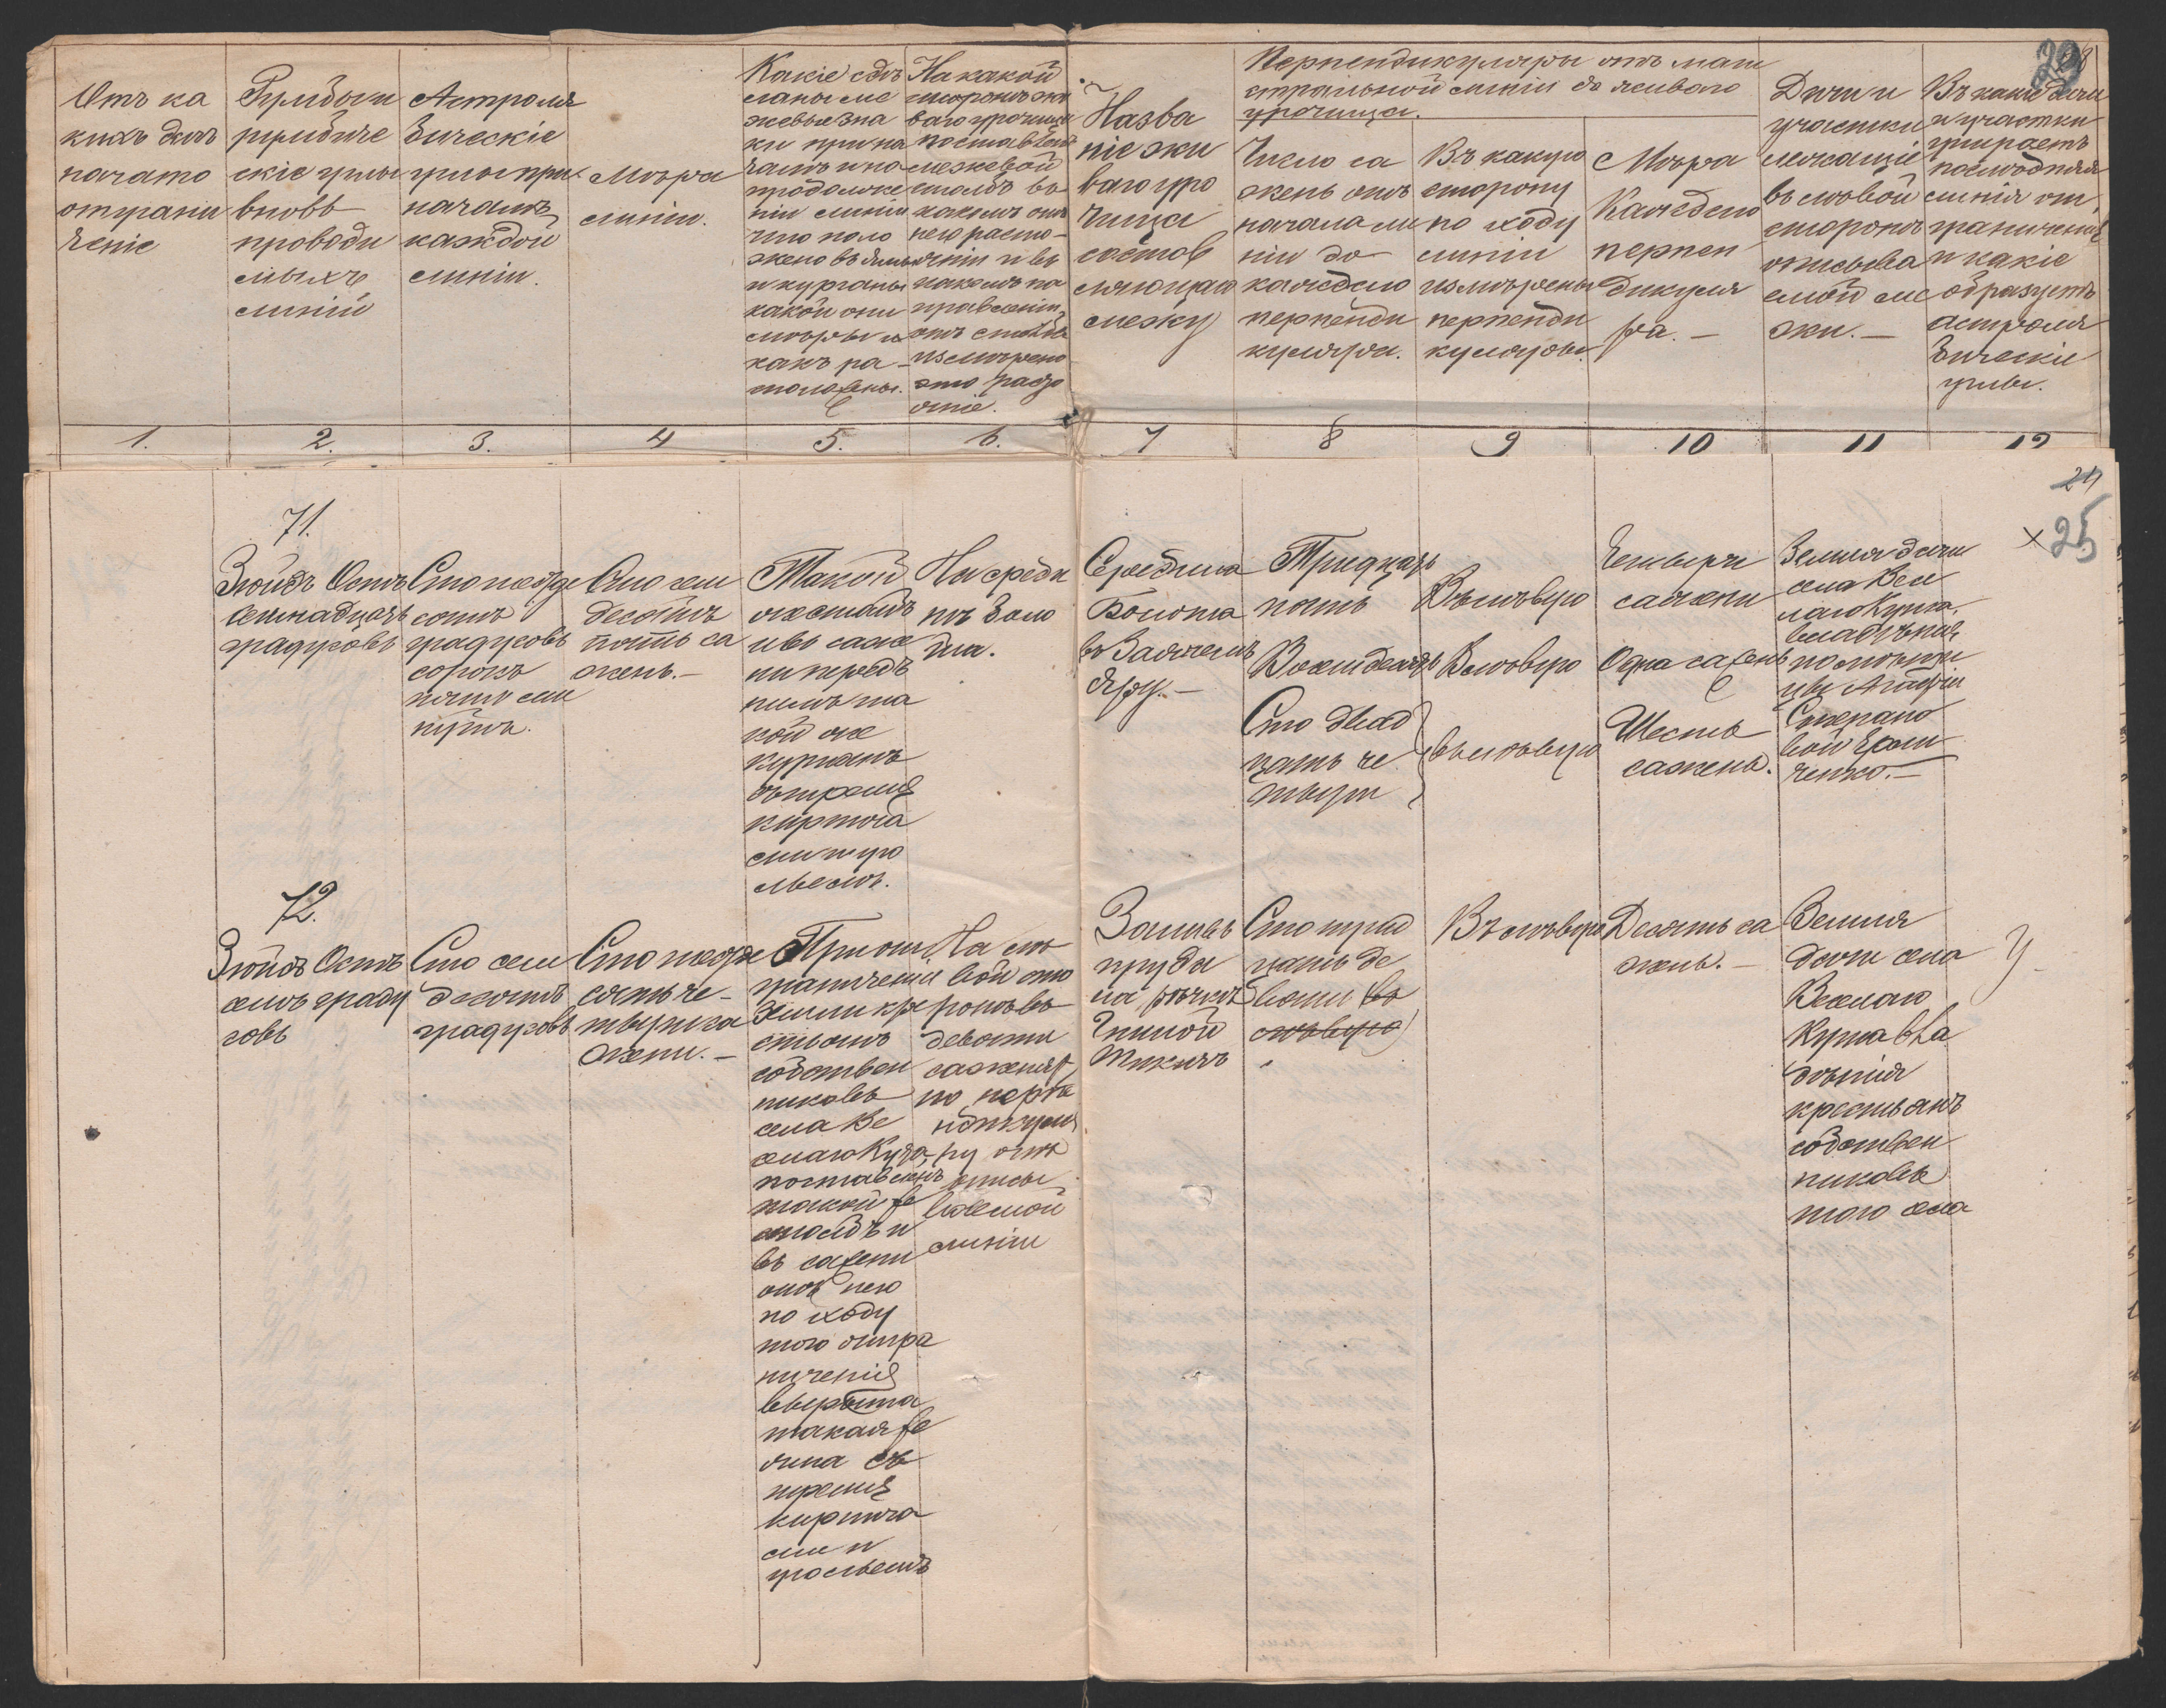 28
29
Отъ ка
кихъ дачъ
начато
ограни
ченіе
Румбы и
румбиче
скіе углы
вновь
проводи
мыхъ
линій
Астроля
бическіе
углы при
началѣ
каждой
линіи.
Мѣра
линіи.
Какіе сдѣ
ланы ме
жевые зна
ки при на
чалѣ и по
продолже
ніи линіи
что поло
жено въ ямы
и курганы
какой они
мѣры и
какъ ра
положены.
На какой
сторонѣ жи
ваго урочища
поставленъ
межевой
столбъ въ
какомъ отъ
него разсто-
яніи и въ
какомъ на
правленіи
отъ столба
измѣрено
это разсто
яніе.
Назва
ніе жи
ваго уро
чища
состав
ляющаго
межу
Перпендикуляры отъ маги
стральной линіи до живаго
урочища.
Число са
жень отъ
начала ли
ніи до
каждаго
перпенди
куляра.
Въ какую
сторону
по ходу
линіи
измѣрены
перпенди
куляры.
Мѣра
каждаго
перпен
дикуля
ра. —
Дачи и
участки
лежащіе
въ лѣвой
сторонѣ
описыва
емой ме
жи. —
Въ какіе дачи
и участки
упирается
послѣдняя
линія от
граниченія
и какіе
образуетъ
астроля
бическіе
углы.
1. 2. 3. 4 5. 6. 7 8 9 10 11 12
24
× 25
71.
Зюйдъ Остъ
семнадцать
градусовъ
Сто шестьде
сятъ
градусовъ
сорокъ
пять ми
нутъ.
Сто семь
десятъ
пять са
жень. —
Такой
же столбъ
и въ саже
ни передъ
нимъ та
кой же
курганъ
съ тремя
кирпича
ми и уго
льемъ.
На среди
нѣ боло
та.
Середина
Болота
въ Заячемъ
Яру. —
Тридцать
пять
Восемьдесятъ
Сто двад
цать че
тыри
Въ лѣвую
Въ лѣвую
въ лѣвую
Четыри
сажени
Одна сажень
Шесть
сажень.
Земля дачи
села Весе
лаго Кута,
владѣнія
помѣщи
цы Агафіи
Степано
вой Ерми
ченко. —
72.
Зюйдъ Остъ
семь граду
совъ
Сто семь
десятъ
градусовъ
Сто шестьде
сятъ че-
тыри са
жени. —
При от
граниченіи
земли кре
стьянъ
собствен
никовъ
села Ве
селаго Кута,
поставленъ
такой же
столбъ и
въ сажени
отъ него
по ходу
того отгра
ниченія
вырыта
такая же
яма съ
тремя
кирпича
ми и
угольемъ
На лѣ
вой сто
ронѣ въ
девяти
саженяхъ
по перпе
ндикуля
ру отъ
описы
ваемой
линіи
Заливъ
пруда
на рѣчкѣ
Гнилой
Тикичъ
Сто трид
цать де
вять (въ
лѣвую)
Въ лѣвую
Десять са
жень. —
Земля
дачи села
Веселаго
Кута вла
дѣнія
крестьянъ
собствен
никовъ
того села